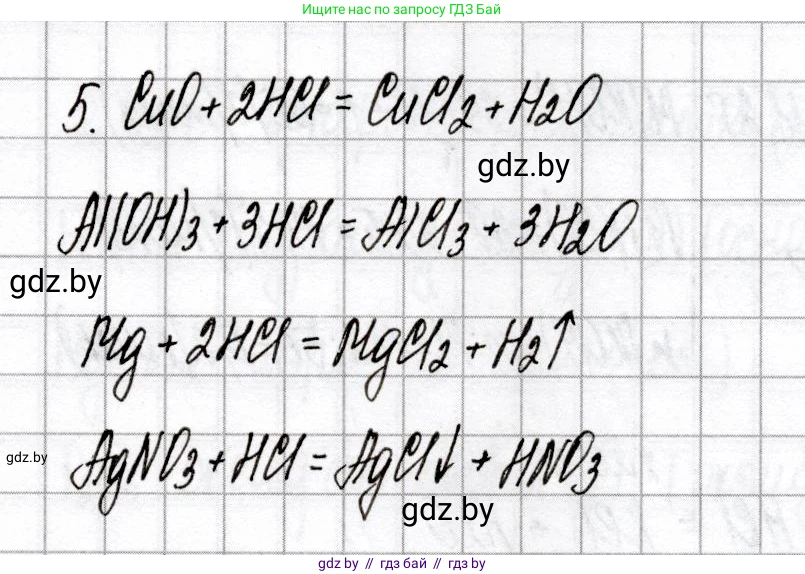 Ищите нас по запросу ГДЗ Бай
5. CuO + 2HCl = CuCl2 + H2O
gdz.by
Al(OH)3 + 3HCl = AlCl3 + 3H2O
gdz.by
Mg + 2HCl = MgCl2 + H2↑
AgNO3 + HCl = AgCl↓ + HNO3
gdz.by
gdz.by
gdz.by // гдз бай // gdz.by